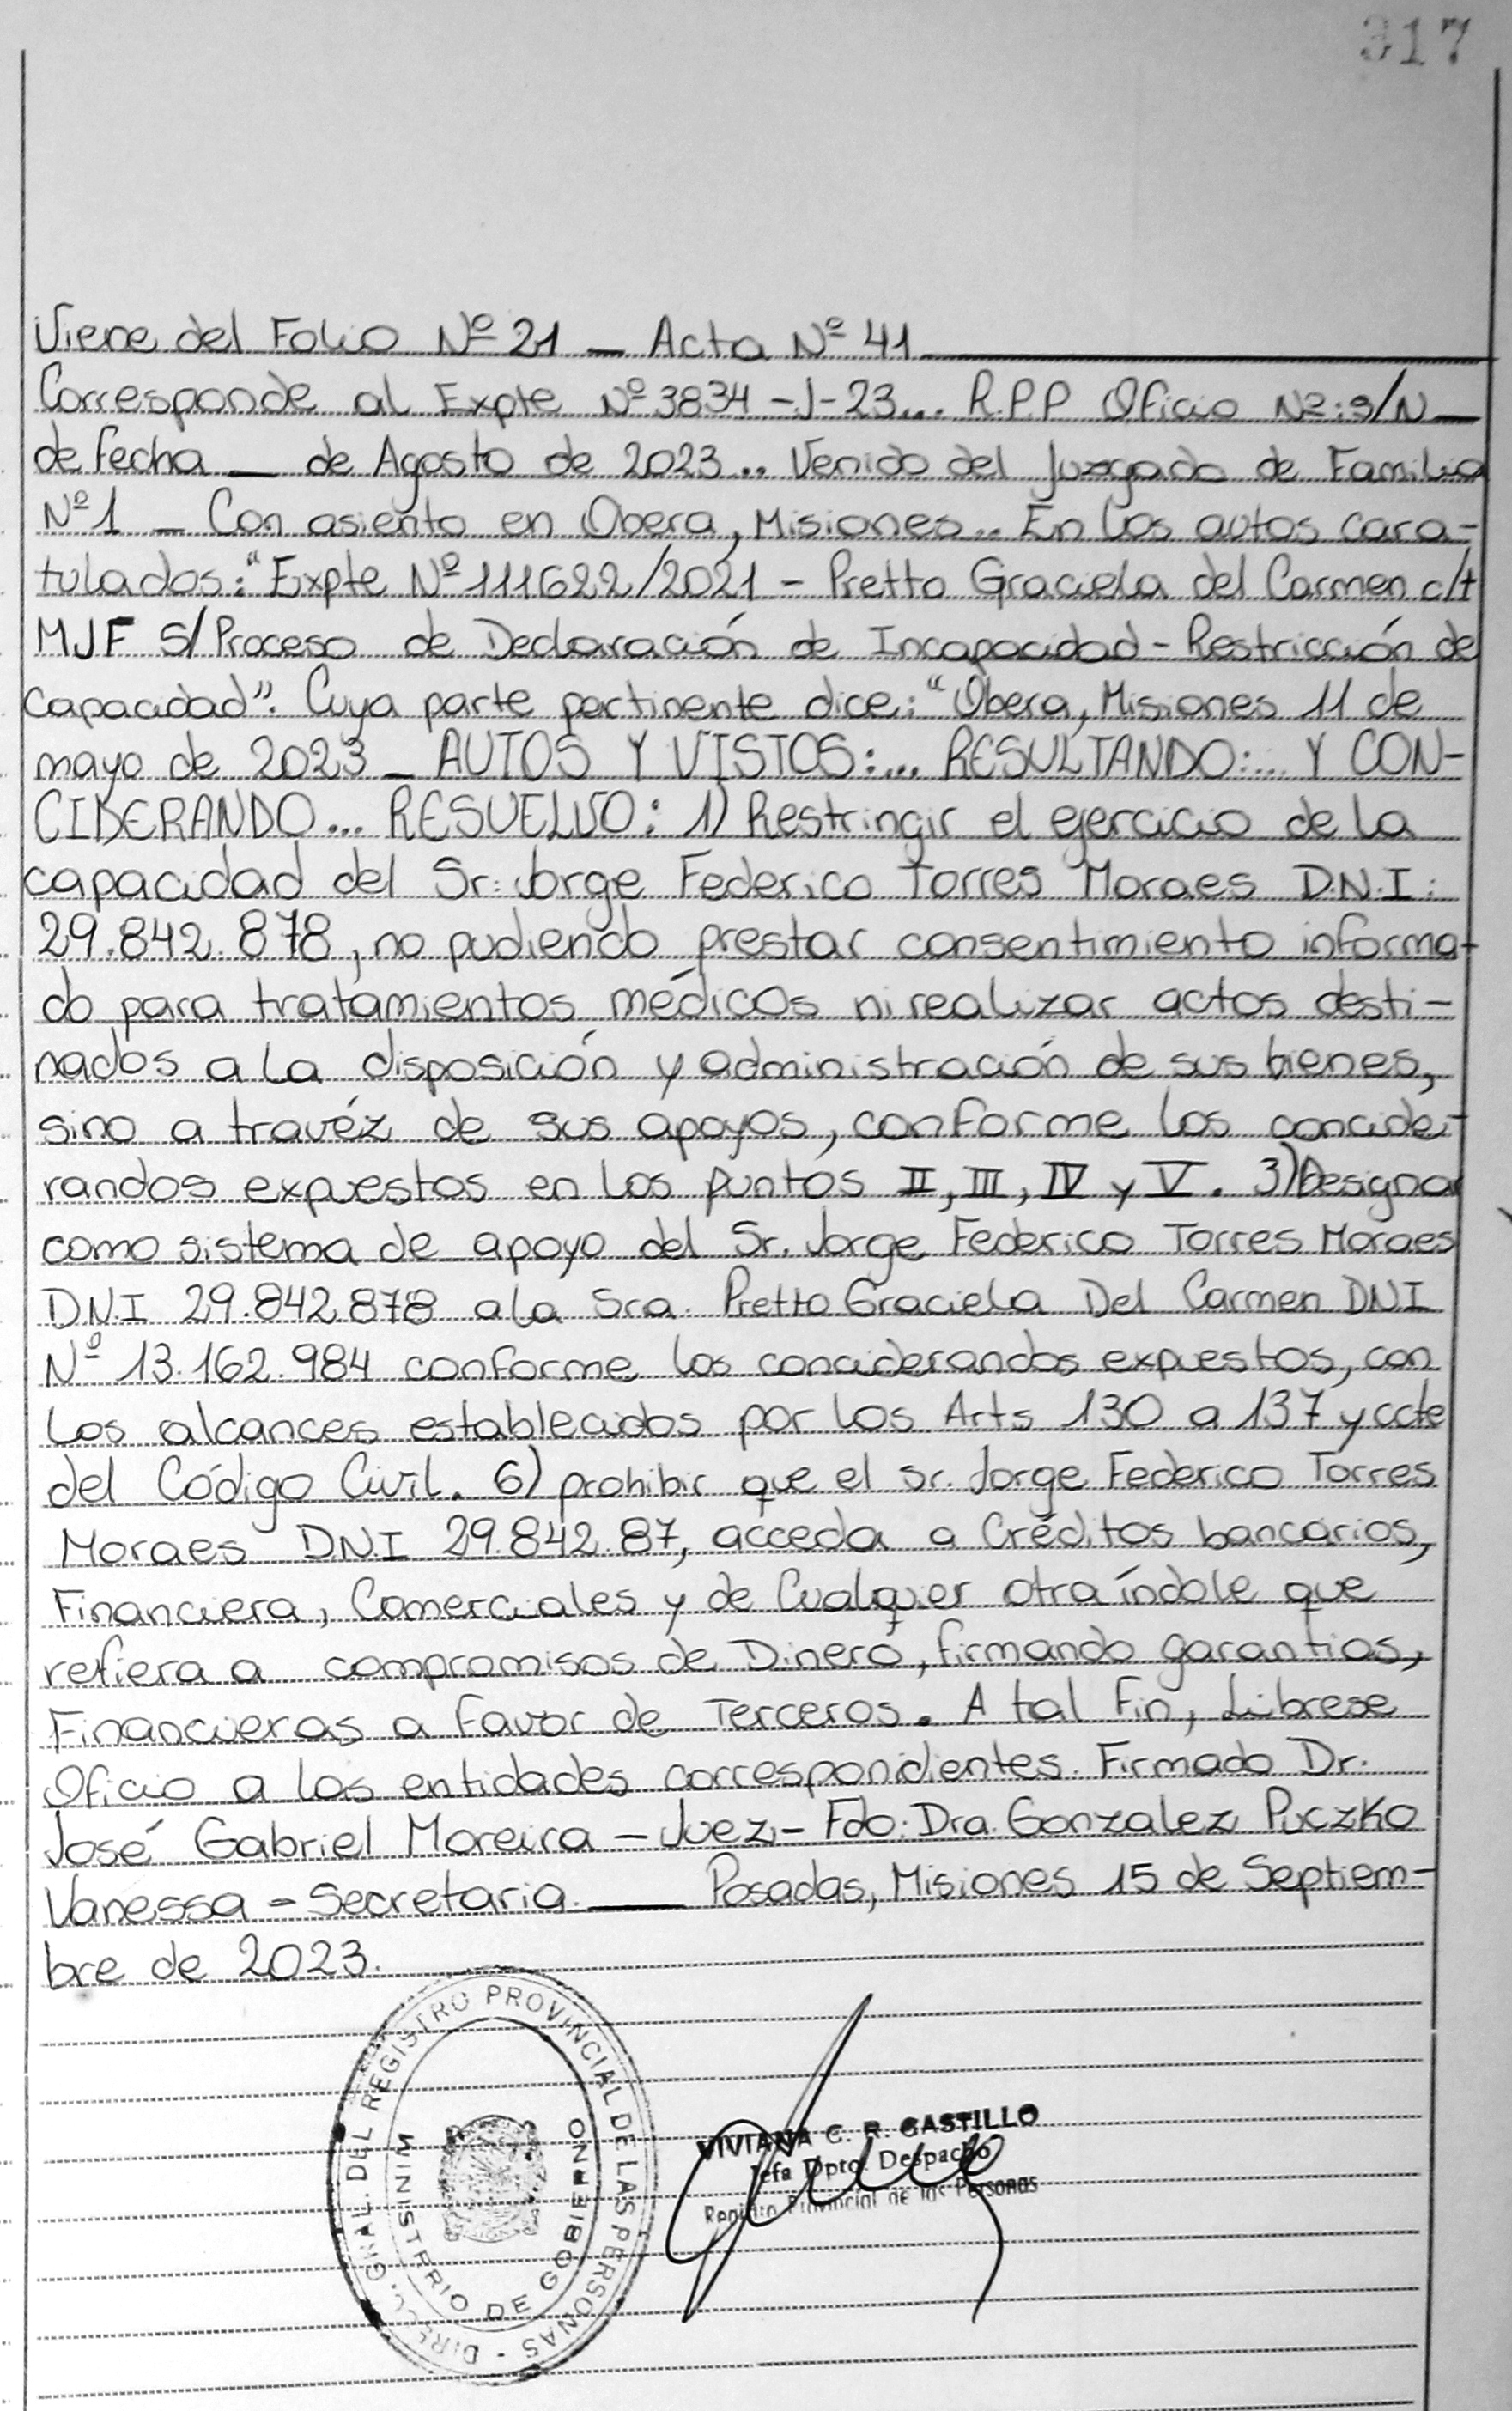 317
Viene del Folio Nº 21 — Acta Nº 41
Corresponde al Expte Nº 3834 -J- 23... R.P.P Oficio Nº: S/N —
de fecha — de Agosto de 2023.. Venido del Juzgado de Familia
Nº 1 — Con asiento en Obera, Misiones.. En los autos cara-
tulados: "Expte Nº 111622/2021 - Pretto Graciela del Carmen c/t
MJF S/ Proceso de Declaración de Incapacidad - Restricción de
capacidad". Cuya parte pertinente dice: "Obera, Misiones 11 de
mayo de 2023 — AUTOS Y VISTOS:... RESULTANDO:... Y CON-
CIDERANDO... RESUELVO: 1) Restringir el ejercicio de la
capacidad del Sr: Jorge Federico Torres Moraes D.N.I:
29.842.878, no pudiendo prestar consentimiento informa-
do para tratamientos médicos ni realizar actos desti-
nados a la disposición y administración de sus bienes,
sino a travéz de sus apoyos, conforme los concide-
randos expuestos en los puntos II, III, IV y V. 3) Designar
como sistema de apoyo del Sr. Jorge Federico Torres Moraes
D.N.I 29.842.878 a la Sra. Pretto Graciela Del Carmen DNI
Nº 13.162.984 conforme los conciderandos expuestos, con
los alcances establecidos por los Arts 130 a 137 y ccte
del Código Civil. 6) prohibir que el sr. Jorge Federico Torres
Moraes D.N.I 29.842.87, acceda a Créditos bancarios,
Financiera, Comerciales y de Cualquier otra índole que
refiera a compromisos de Dinero, firmando garantias,
Financieras a favor de Terceros. A tal Fin, Líbrese
Oficio a las entidades correspondientes. Firmado Dr.
José Gabriel Moreira - Juez - Fdo: Dra. Gonzalez Puczko
Vanessa - Secretaria. — Posadas, Misiones 15 de Septiem-
bre de 2023.
GRAL. DEL REGISTRO PROVINCIAL DE LAS PERSONAS -
MINISTERIO DE GOBIERNO
VIVIANA C. R. CASTILLO
Jefa Dpto. Despacho
Registro Provincial de las Personas